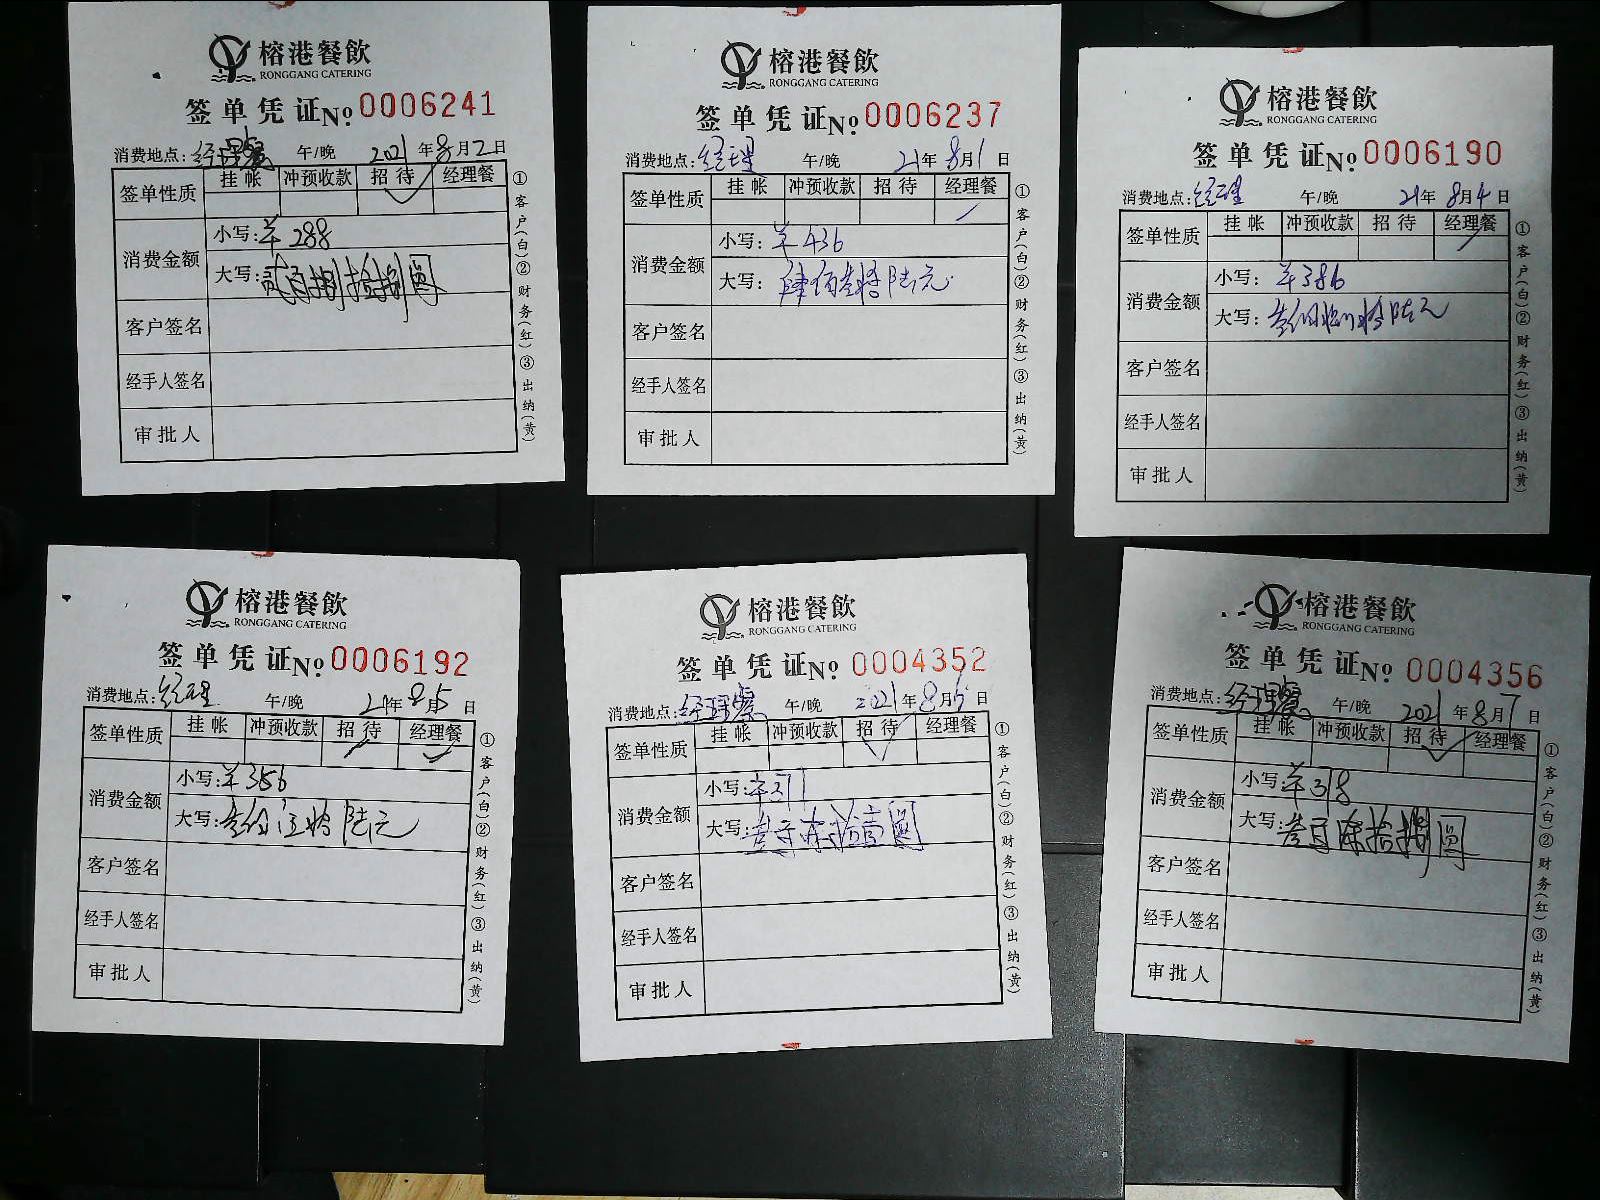 榕港餐飲
RONGGANG CATERING
签单凭证 No. 0006241
消费地点: 经理餐 午/晚 2021年8月2日
签单性质 挂帐 冲预收款 招待 经理餐
消费金额 小写: ¥288
大写: 贰百捌拾捌圆
客户签名
经手人签名
审批人
①客户(白)②财务(红)③出纳(黄)
榕港餐飲
RONGGANG CATERING
签单凭证 No. 0006237
消费地点: 经理 午/晚 21年8月1日
签单性质 挂帐 冲预收款 招待 经理餐
消费金额 小写: ¥436
大写: 肆佰叁拾陆元
客户签名
经手人签名
审批人
①客户(白)②财务(红)③出纳(黄)
榕港餐飲
RONGGANG CATERING
签单凭证 No. 0006190
消费地点: 经理 午/晚 21年8月4日
签单性质 挂帐 冲预收款 招待 经理餐
消费金额 小写: ¥386
大写: 叁佰捌拾陆元
客户签名
经手人签名
审批人
①客户(白)②财务(红)③出纳(黄)
榕港餐飲
RONGGANG CATERING
签单凭证 No. 0006192
消费地点: 经理 午/晚 21年8月5日
签单性质 挂帐 冲预收款 招待 经理餐
消费金额 小写: ¥356
大写: 叁佰伍拾陆元
客户签名
经手人签名
审批人
①客户(白)②财务(红)③出纳(黄)
榕港餐飲
RONGGANG CATERING
签单凭证 No. 0004352
消费地点: 经理餐 午/晚 2021年8月6日
签单性质 挂帐 冲预收款 招待 经理餐
消费金额 小写: ¥371
大写: 叁百柒拾壹圆
客户签名
经手人签名
审批人
①客户(白)②财务(红)③出纳(黄)
榕港餐飲
RONGGANG CATERING
签单凭证 No. 0004356
消费地点: 经理餐 午/晚 2021年8月7日
签单性质 挂帐 冲预收款 招待 经理餐
消费金额 小写: ¥378
大写: 叁百柒拾捌圆
客户签名
经手人签名
审批人
①客户(白)②财务(红)③出纳(黄)